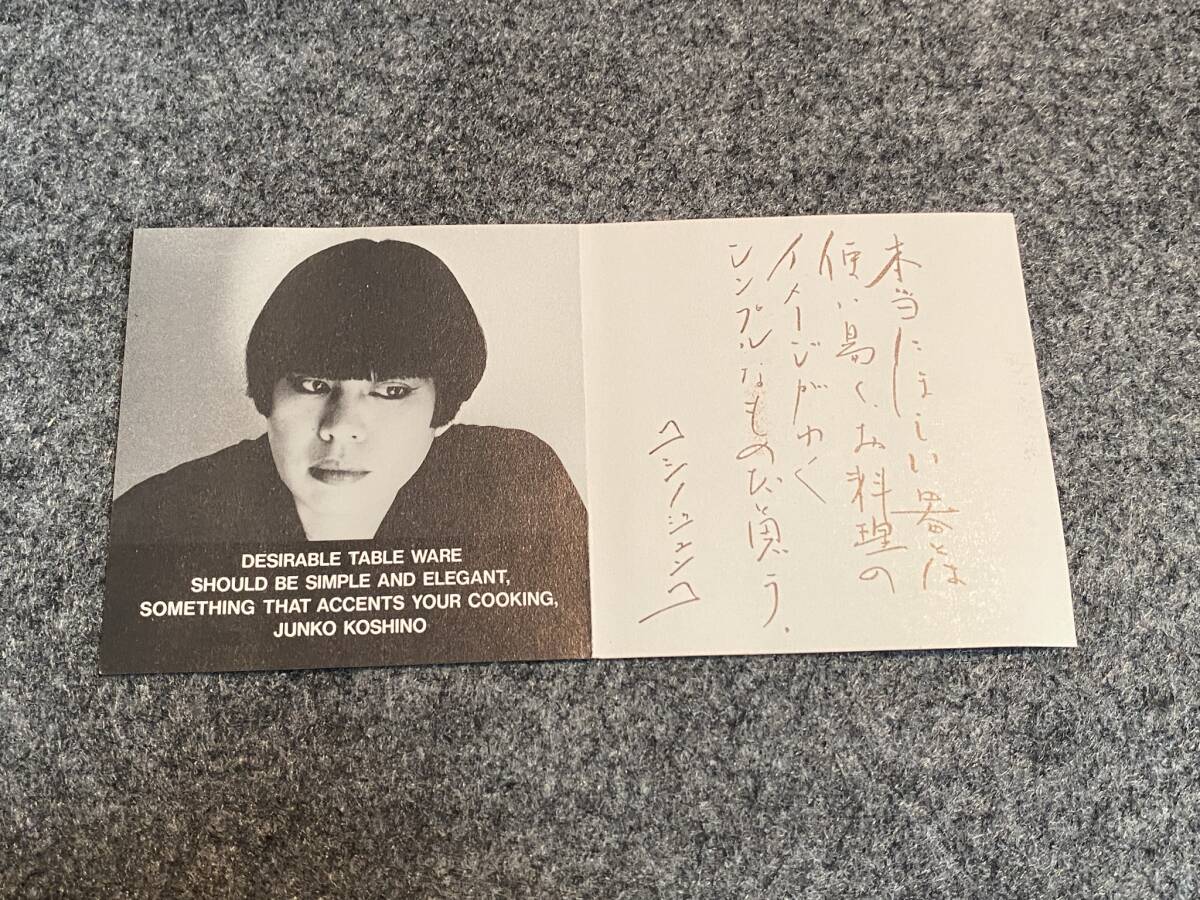 DESIRABLE TABLE WARE
SHOULD BE SIMPLE AND ELEGANT,
SOMETHING THAT ACCENTS YOUR COOKING,
JUNKO KOSHINO
本当にほしい器とは
使い易く、お料理の
イメージがわく
シンプルなものだと思う.
コシノジュンコ